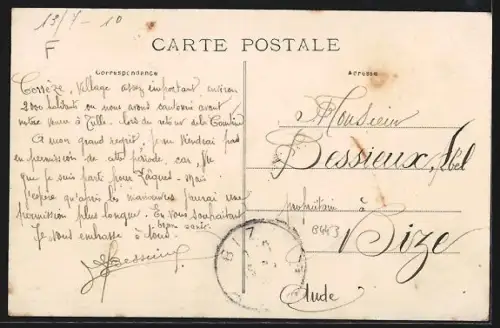 13/7-10
F
CARTE POSTALE
Correspondance
Adresse
Corrèze, village assez important environ
2000 habitants ou nous avons cantonné avant
notre venue à Tulle. Lors du retour de la
A mon grand regret, je ne viendrai pas
en permission de cette période, car, je
que je suis parti pour
J'espère qu'après les manœuvres j'aurai une
permission plus longue. En vous souhaitant
bonne santé
Je vous embrasse à tous.
Bessieux
Monsieur
Bessieux, Abel
propriétaire à
8463
Bize
Aude
BIZE